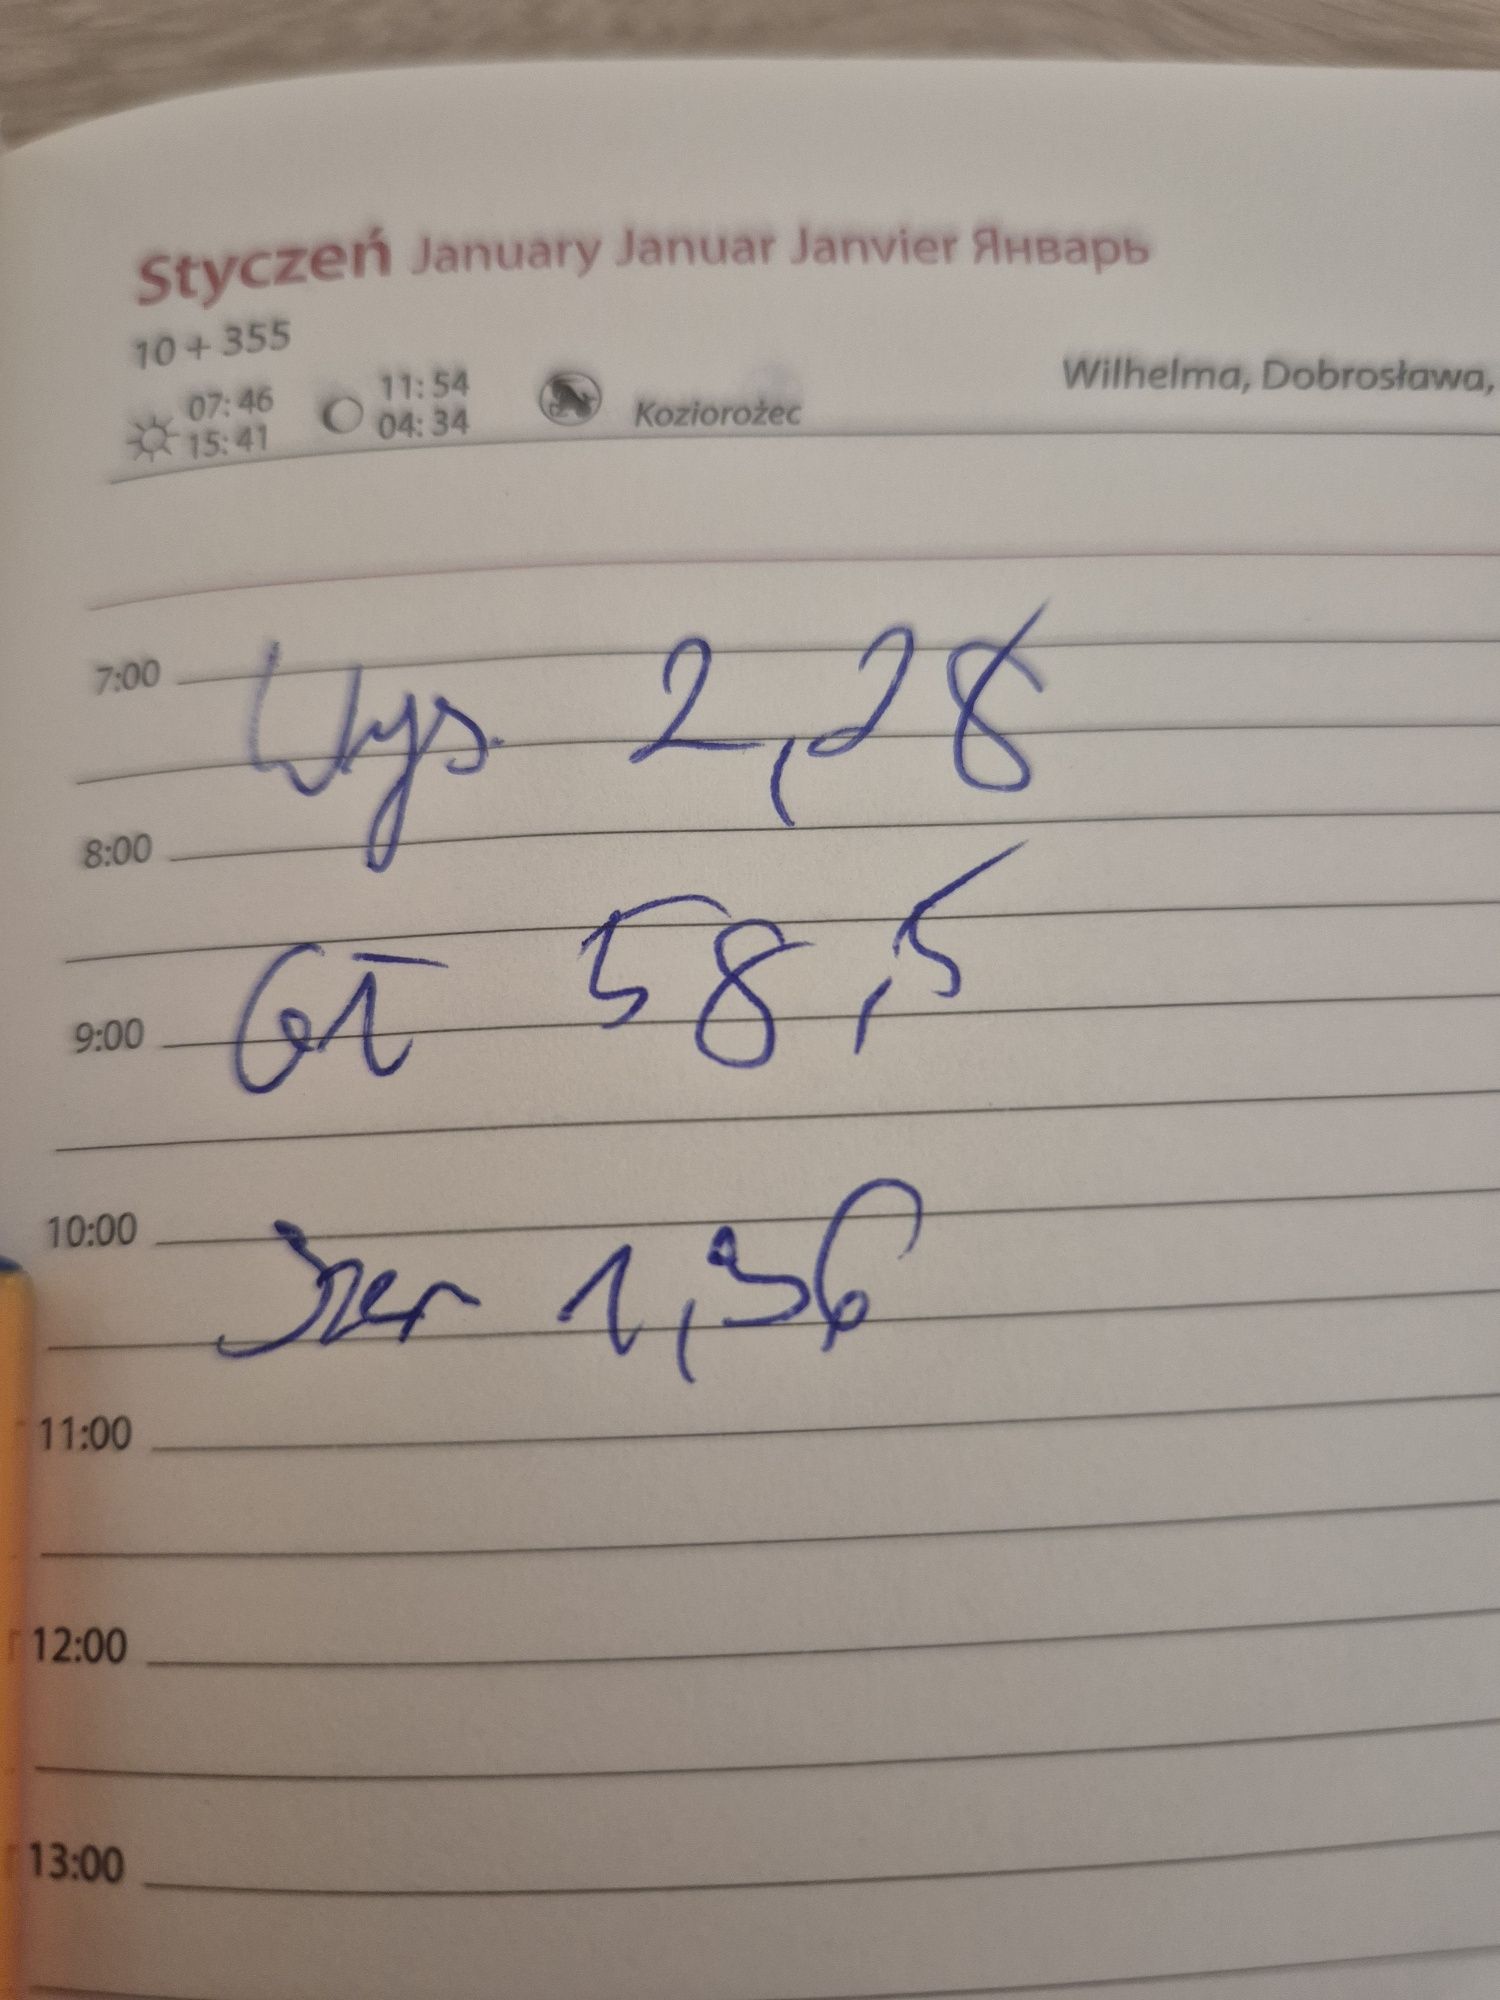 Styczeń January Januar Janvier Январь
10 + 355
Wilhelma, Dobrosława,
07:46 11:54
15:41 04:34
Koziorożec
7:00
Wys. 2,28
8:00
Gł 58,5
9:00
10:00
Szer 1,36
11:00
12:00
13:00